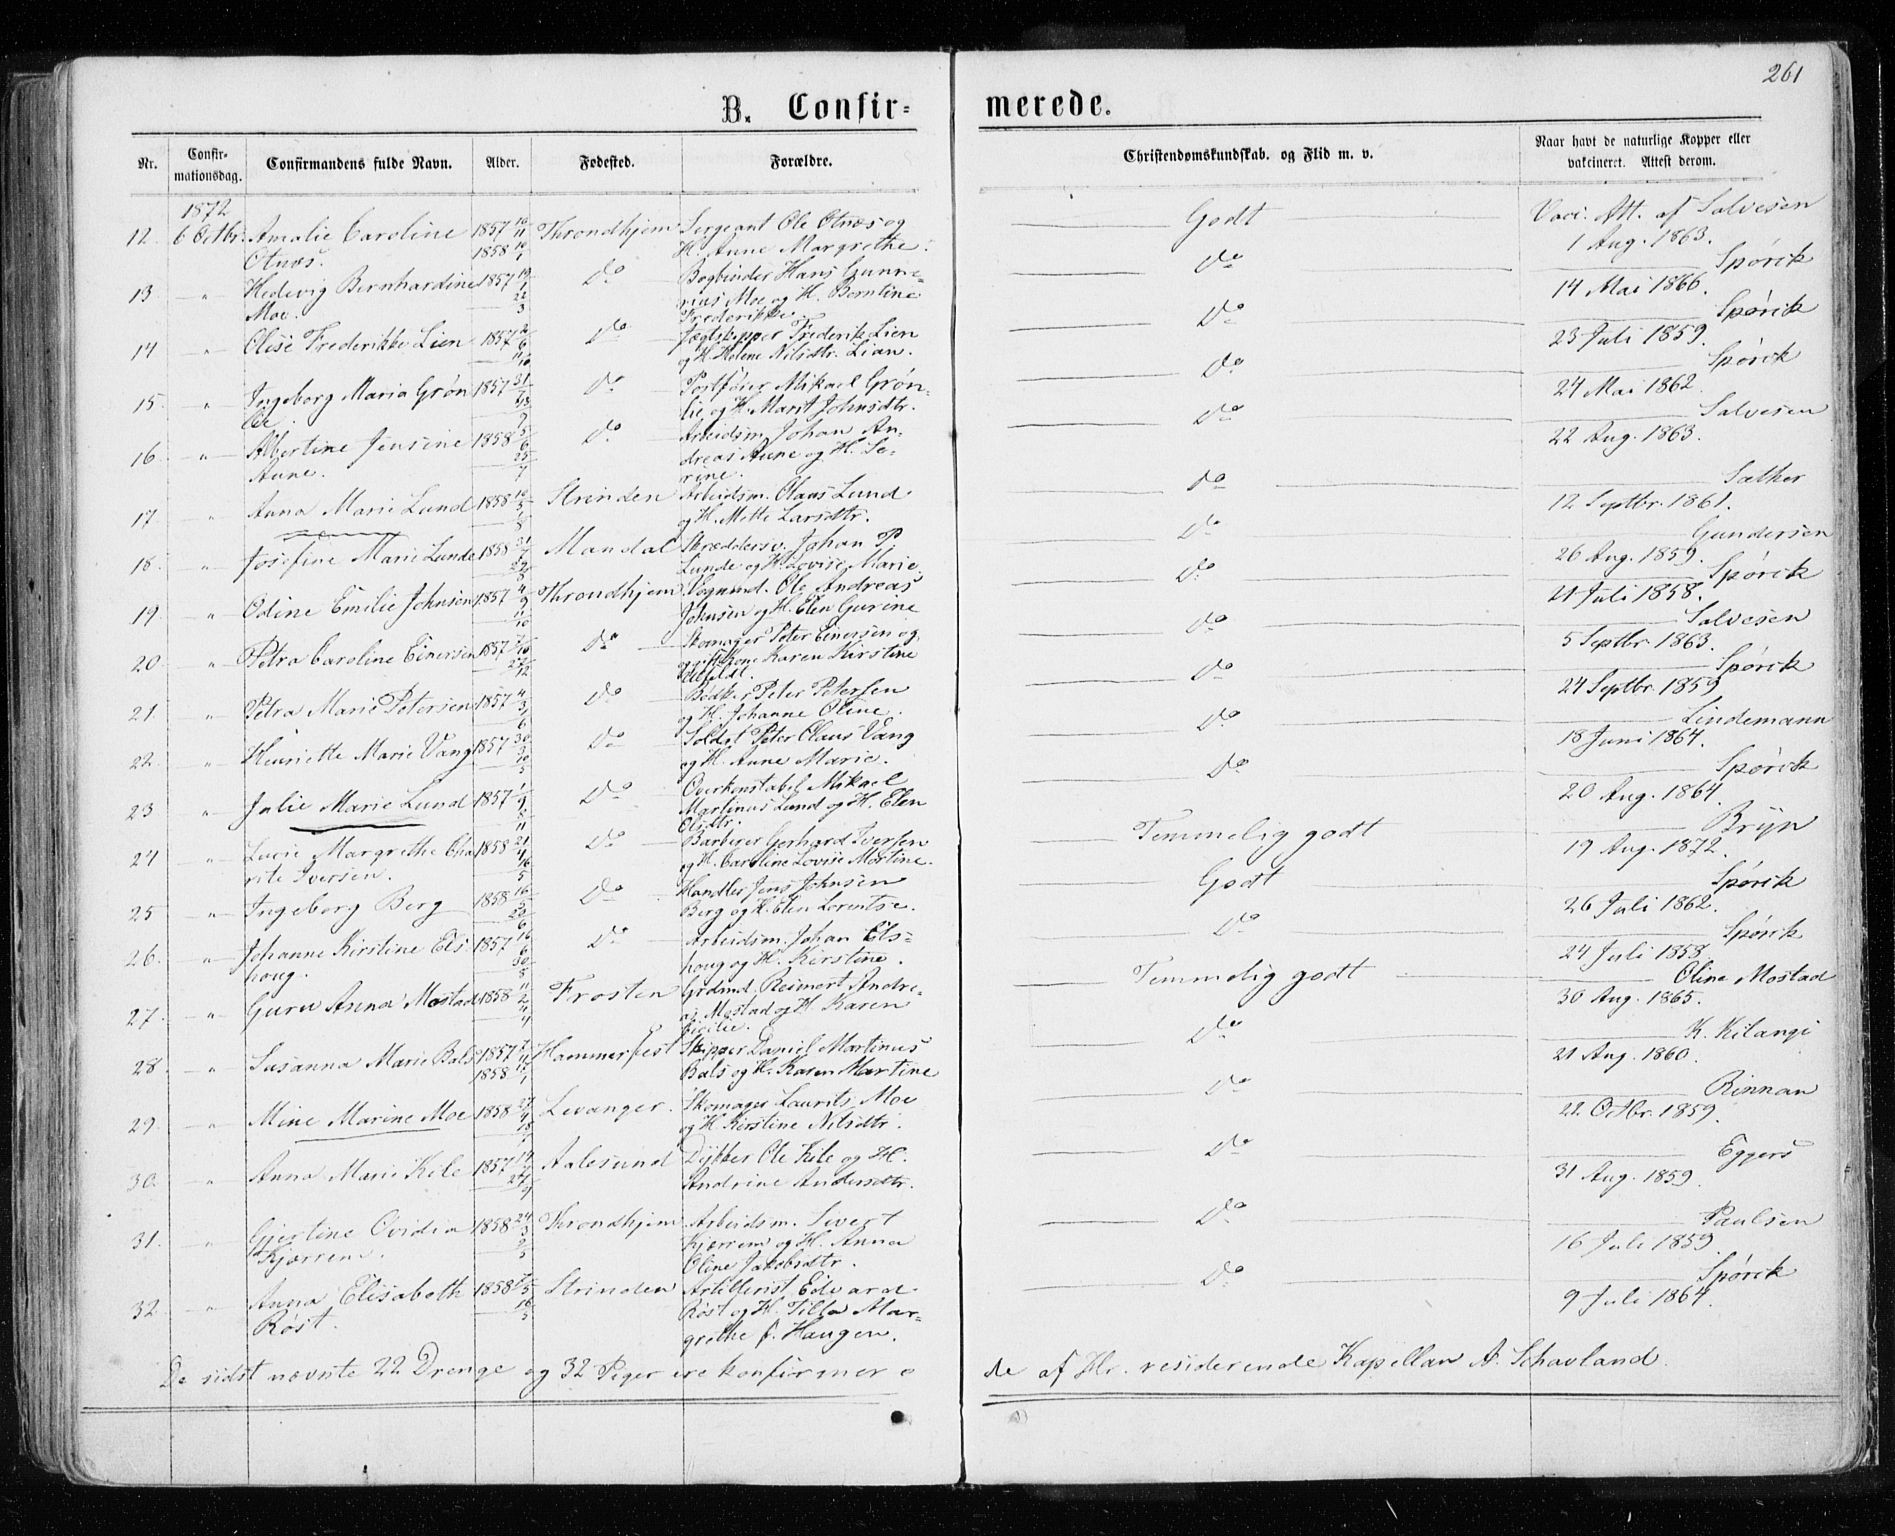 261
B. Confir=
merede.
Nr.
Confir-
mationsdag.
Confirmandens fulde Navn.
Alder.
Fødested.
Forældre.
Christendomskundskab. og Flid m. v.
Naar havt de naturlige Kopper eller
vakcineret. Attest derom.
1872
12. 6 Octbr. Amalie Caroline 1857 16/11 Throndhjem Sergeant Ole Otnæs og Godt Vacc. Att. af Salvesen
Otnæs. 1858 H. Anne Margrethe. 1 Aug. 1863.
13 " Hedevig Bernhardine 1857 Do Bogbinder Hans Gunne- Do Spørck
Moe. rius Moe og H. Berntine 14 Mai 1866.
Frederikke.
14 " Olise Frederikke Lien 1857 Do Jægtskipper Frederik Lien Do Spørck
og H. Helene Nilsdtr. Lian. 23 Juli 1859.
15 " Ingeborg Maria Grøn 1857 Do Postfører Mikael Grøn- Do Spørck
lie. lie og H. Marit Johnsdtr. 24 Mai 1862.
16 " Albertine Jensine 1858 Do Arbeidsm. Johan An- Do Salvesen
Aune. dreas Aune og H. Se- 22 Aug. 1863.
rine.
17 " Anna Marie Lund 1858 Strinden Arbeidsm. Olaus Lund Do Sæther
og H. Mette Larsdtr. 12 Septbr. 1861.
18. " Josefine Marie Lunde 1858 Mandal Skrædersv. Johan P. Do Gundersen
Lunde og H. Lovise Marie. 26 Aug. 1859.
19. " Odine Emilie Johnsen 1857 Throndhjem Vognmd. Ole Andreas Do Spørck
Johnsen og H. Elen Gurine 21 Juli 1858.
20 " Petra Caroline Einersen 1857 Do Skomager Peter Einersen og Do Salvesen
Kone Karen Kirstine 5 Septbr. 1863.
21. " Petra Marie Petersen 1857 Do Bødker Peter Petersen Do Spørck
og H. Johanne Oline. 24 Septbr. 1859
22. " Henriette Marie Vang 1857 Do Soldat Peter Olaus Vang Do Lindemann
og H. Anne Marie. 18 Juni 1864.
23 " Julie Marie Lund 1857 Do Overkonstabel Mikael Do Spørck
Martinus Lund og H. Elen 20 Aug. 1864.
Olsdtr.
24 " Lucie Margrethe Cha 1858 Do Barberer Gerhard Iversen Temmelig godt Bryn
rite Iversen. og H. Caroline Lovise Martine. 19 Aug. 1872.
25 " Ingeborg Berg 1858 Do Handler Jens Johnsen Godt Spørck
Berg og H. Elen Lorentse. 26 Juli 1862.
26. " Johanne Kirstine Els- 1857 Do Arbeidsm. Johan Els- Do Spørck
houg. houg og H. Kirstine. 24 Juli 1858.
27. " Guru Anna Mostad 1858 Frosten Grdmd. Reinert Andre- Temmelig godt Oline Mostad
as Mostad og H. Karen 30 Aug. 1865.
28. " Susanna Marie Bals 1857 Hammerfest Skipper Daniel Martinus Do K. Kilangi
1858 Bals og H. Karen Martine 21 Aug. 1860.
29. " Mine Marine Moe 1858 Levanger. Skomager Laurits Moe Do Rinnan
og H. Kirstine Nilsdtr. 22 Octbr. 1859.
30. " Anna Marie Kile 1857 Aalesund Dykker Ole Kile og H. Do Eggers
Andrine Andersdtr. 31 Aug. 1859.
31. " Gjertine Ovidia 1858 Throndhjem Arbeidsm. Sivert Do Paulsen
Kjærrem. Kjærrem og H. Anna 16 Juli 1859.
Oline Jakobsdtr.
32. " Anna Elisabeth 1858 Strinden Artillerist Edvard Do Spørck
Røst. Røst og H. Tilla Mar- 9 Juli 1864.
grethe f. Haugen.
De sidst nævnte 22 Drenge og 32 Piger ere konfirmere
de af Hr. residerende Kapellan A. Schavland.